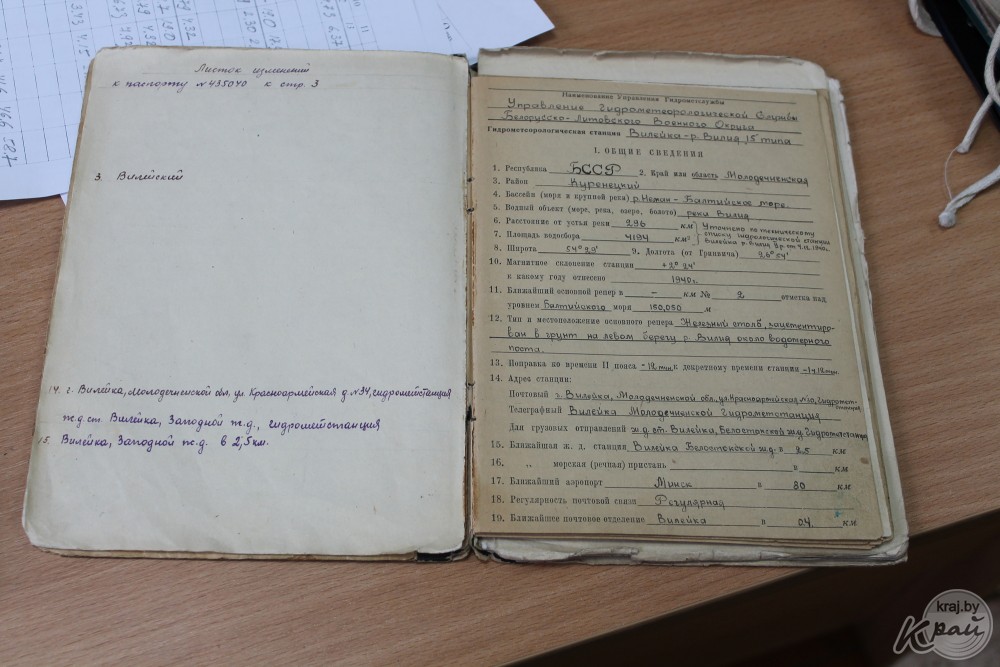 Листок изменений
к паспорту №435040 к стр. 3
3. Вилейский
14. г. Вилейка, Молодечненской обл, ул. Красноармейская д. №34, гидрометстанция
ж.д. ст. Вилейка, Западной ж.д., гидрометстанция
15. Вилейка, Западной ж.д. в 2,5 км.
Наименование Управления Гидрометслужбы
Управление Гидрометеорологической Службы
Белорусско-Литовского Военного Округа
Гидрометеорологическая станция Вилейка-р. Вилия, 15 типа
I. ОБЩИЕ СВЕДЕНИЯ
1. Республика БССР 2. Край или область Молодечненская
3. Район Куренецкий
4. Бассейн (моря и крупной реки) р. Неман - Балтийское море.
5. Водный объект (море, река, озеро, болото) река Вилия
6. Расстояние от устья реки 296 км
7. Площадь водосбора 4194 км²
Уточнено по техническому
списку гидрологической станции
Вилейка р. Вилия
8. Широта 54° 29' 9. Долгота (от Гринвича) 26° 54'
10. Магнитное склонение станции +2° 24'
к какому году отнесено 1940 г.
11. Ближайший основной репер в - км № 2 отметка над
уровнем Балтийского моря 150,050 м
12. Тип и местоположение основного репера Железный столб, зацементиро-
ван в грунт на левом берегу р. Вилия около водомерного
поста.
13. Поправка ко времени II пояса -12 мин. к декретному времени станции
14. Адрес станции:
Почтовый г. Вилейка, Молодечненской обл., ул. Красноармейская №10, Гидромет-
станция
Телеграфный Вилейка Молодечненской Гидрометстанция
Для грузовых отправлений ж.д. ст. Вилейка, Белостокской ж.д. Гидрометстанция
15. Ближайшая ж. д. станция Вилейка Белостокской ж.д. в 2,5 км
16. „ морская (речная) пристань в км
17. Ближайший аэропорт Минск в 80 км
18. Регулярность почтовой связи Регулярная
19. Ближайшее почтовое отделение Вилейка в 0,4 км
kraj.by
Край